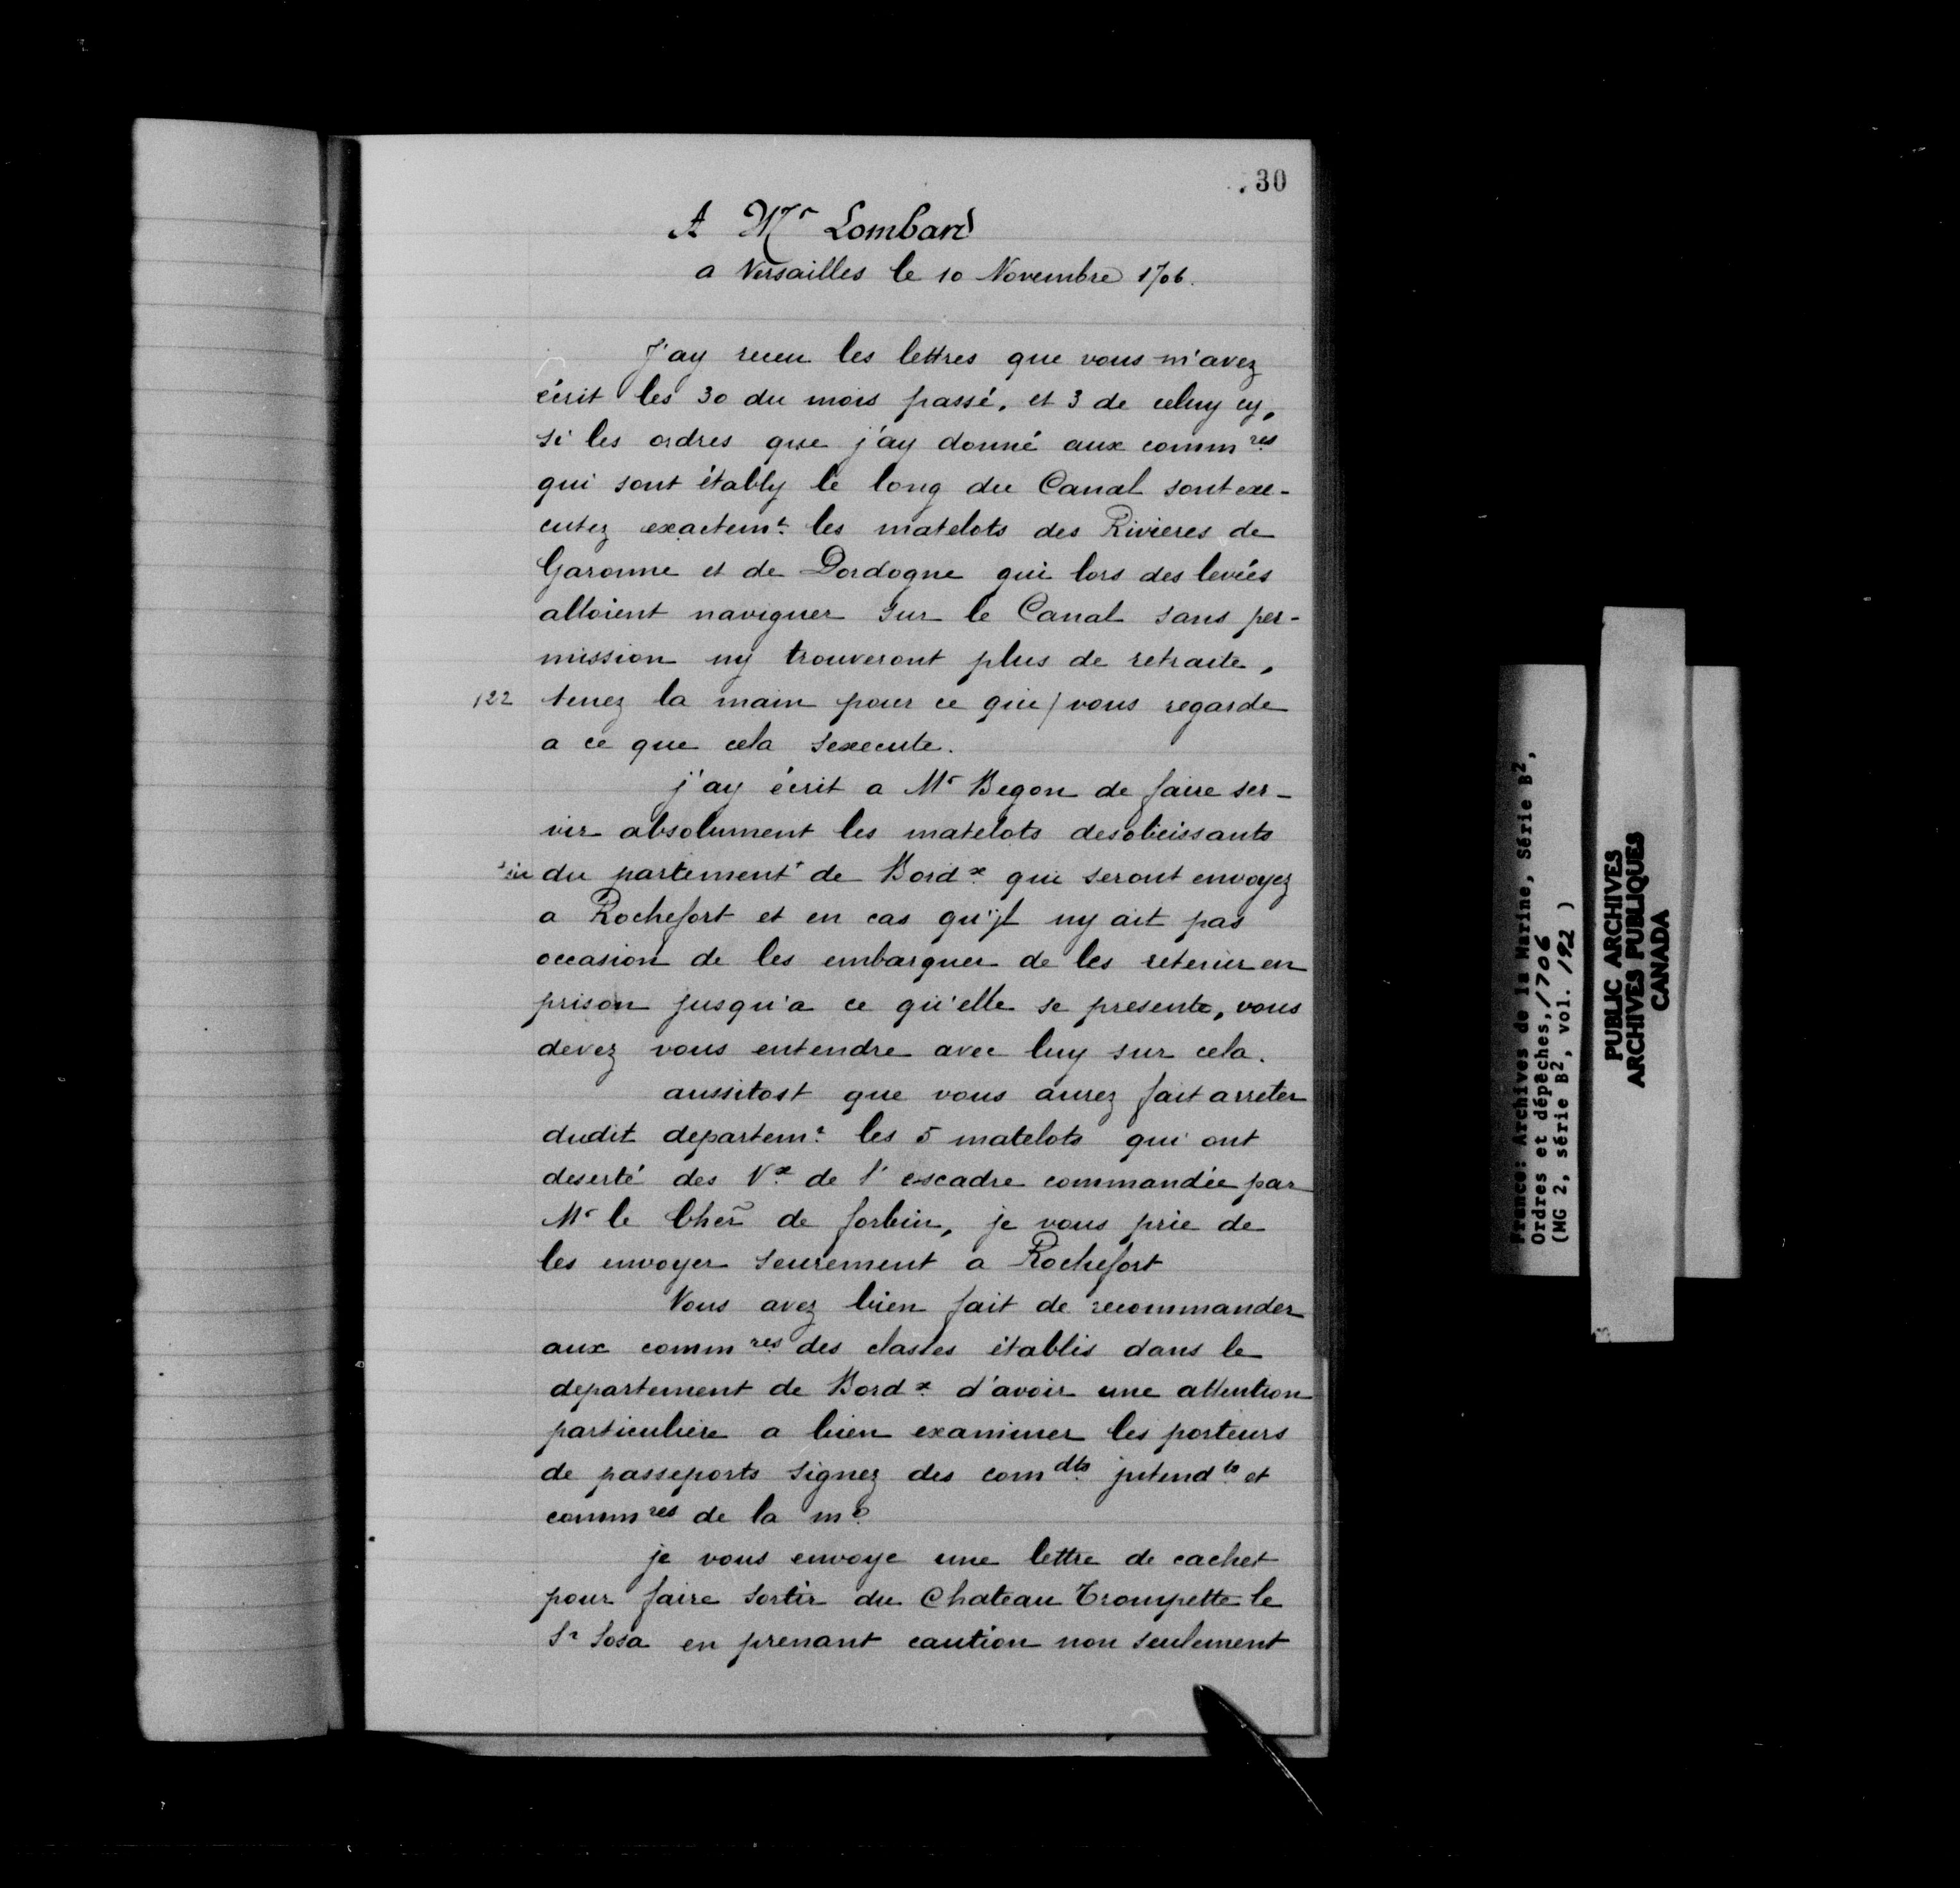 30
A Mr Lombard
a Versailles le 10 Novembre 1706.
J'ay receu les lettres que vous m'avez
écrit les 30 du mois passé, et 3 de celuy cy,
si les ordres que j'ay donné aux comm.res
qui sont étably le long du Canal sont exe-
cutez exactem.t les matelots des Rivieres de
Garonne et de Dordogne qui lors des levées
alloient naviguer sur le Canal sans per-
mission ny trouveront plus de retraite,
122 tenez la main pour ce qui / vous regarde
a ce que cela sexecute.
j'ay écrit a Mr Begon de faire ser-
vir absolument les matelots desobeissants
sic du partement de Bord.x qui seront envoyez
a Rochefort et en cas qu'jl ny ait pas
occasion de les embarquer de les retenir en
prison jusqu'a ce qu'elle se presente, vous
devez vous entendre avec luy sur cela.
aussitost que vous aurez fait arreter
dudit departem.t les 5 matelots qui ont
deserté des V.x de l'escadre commandée par
Mr le Cher de forbin, je vous prie de
les envoyer seurement a Rochefort
Vous avez bien fait de recommander
aux comm.res des classes établis dans le
departement de Bord.x d'avoir une attention
particuliere a bien examiner les porteurs
de passeports signez des com.dts jntend.ts et
comm.res de la m.e
je vous envoye une lettre de cachet
pour faire sortir du Chateau Trompette le
Sr Sosa en prenant caution non seulement
France: Archives de la Marine, Série B2,
Ordres et dépêches, 1706
(MG 2, série B2, vol. 192 )
PUBLIC ARCHIVES
ARCHIVES PUBLIQUES
CANADA